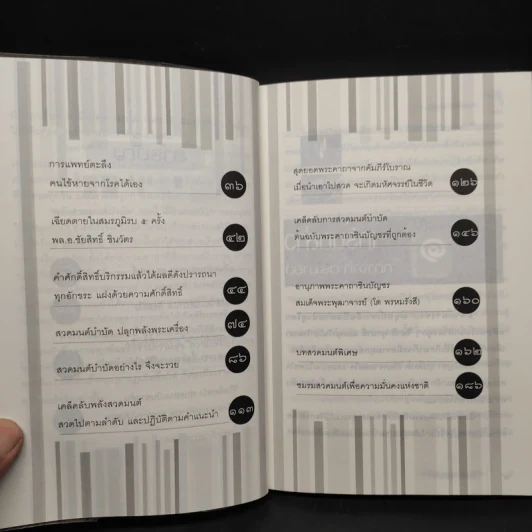 การแพทย์ตะลึง
คนไข้หายจากโรคได้เอง
๓๖
เฉียดตายในสมรภูมิรบ ๕ ครั้ง
พล.อ.ชัยสิทธิ์ ชินวัตร
๔๒
คำศักดิ์สิทธิ์บริกรรมแล้วได้ผลดีดังปรารถนา
ทุกอักขระ แฝงด้วยความศักดิ์สิทธิ์
๕๔
สวดมนต์บำบัด ปลุกพลังพระเครื่อง
๗๔
สวดมนต์บำบัดอย่างไร จึงจะรวย
๘๖
เคล็ดลับพลังสวดมนต์
สวดไปตามลำดับ และปฏิบัติตามคำแนะนำ
๑๑๓
สุดยอดพระคาถาจากคัมภีร์โบราณ
เมื่อนำเอาไปสวด จะเกิดมหัศจรรย์ในชีวิต
๑๒๖
เคล็ดลับการสวดมนต์บำบัด
ต้นฉบับพระคาถาชินบัญชรที่ถูกต้อง
๑๔๖
อานุภาพพระคาถาชินบัญชร
สมเด็จพระพุฒาจารย์ (โต พรหมรังสี)
๑๖๐
บทสวดมนต์พิเศษ
๑๖๒
ชมรมสวดมนต์เพื่อความมั่นคงแห่งชาติ
๑๘๖